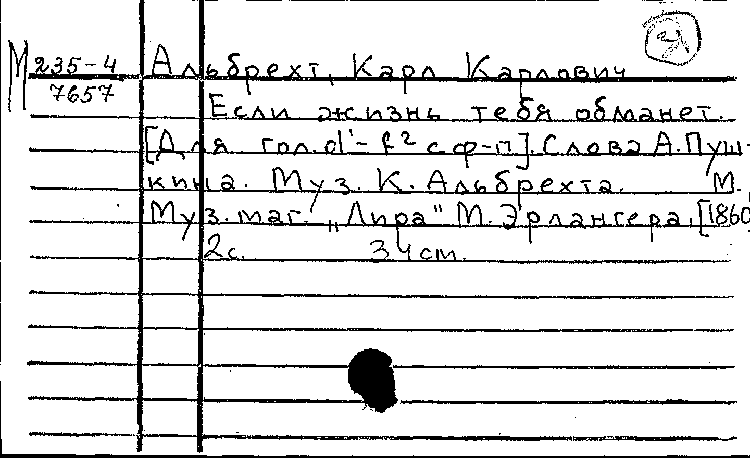 М 235-4 Альбрехт, Карл Карлович
7657 Если жизнь тебя обманет.
[Для гол. d¹-f² с ф-п]. Слова А. Пуш-
кина. Муз. К. Альбрехта. М.,
Муз. маг. „Лира" М. Эрлангера, [1860
2с. 34 cm.